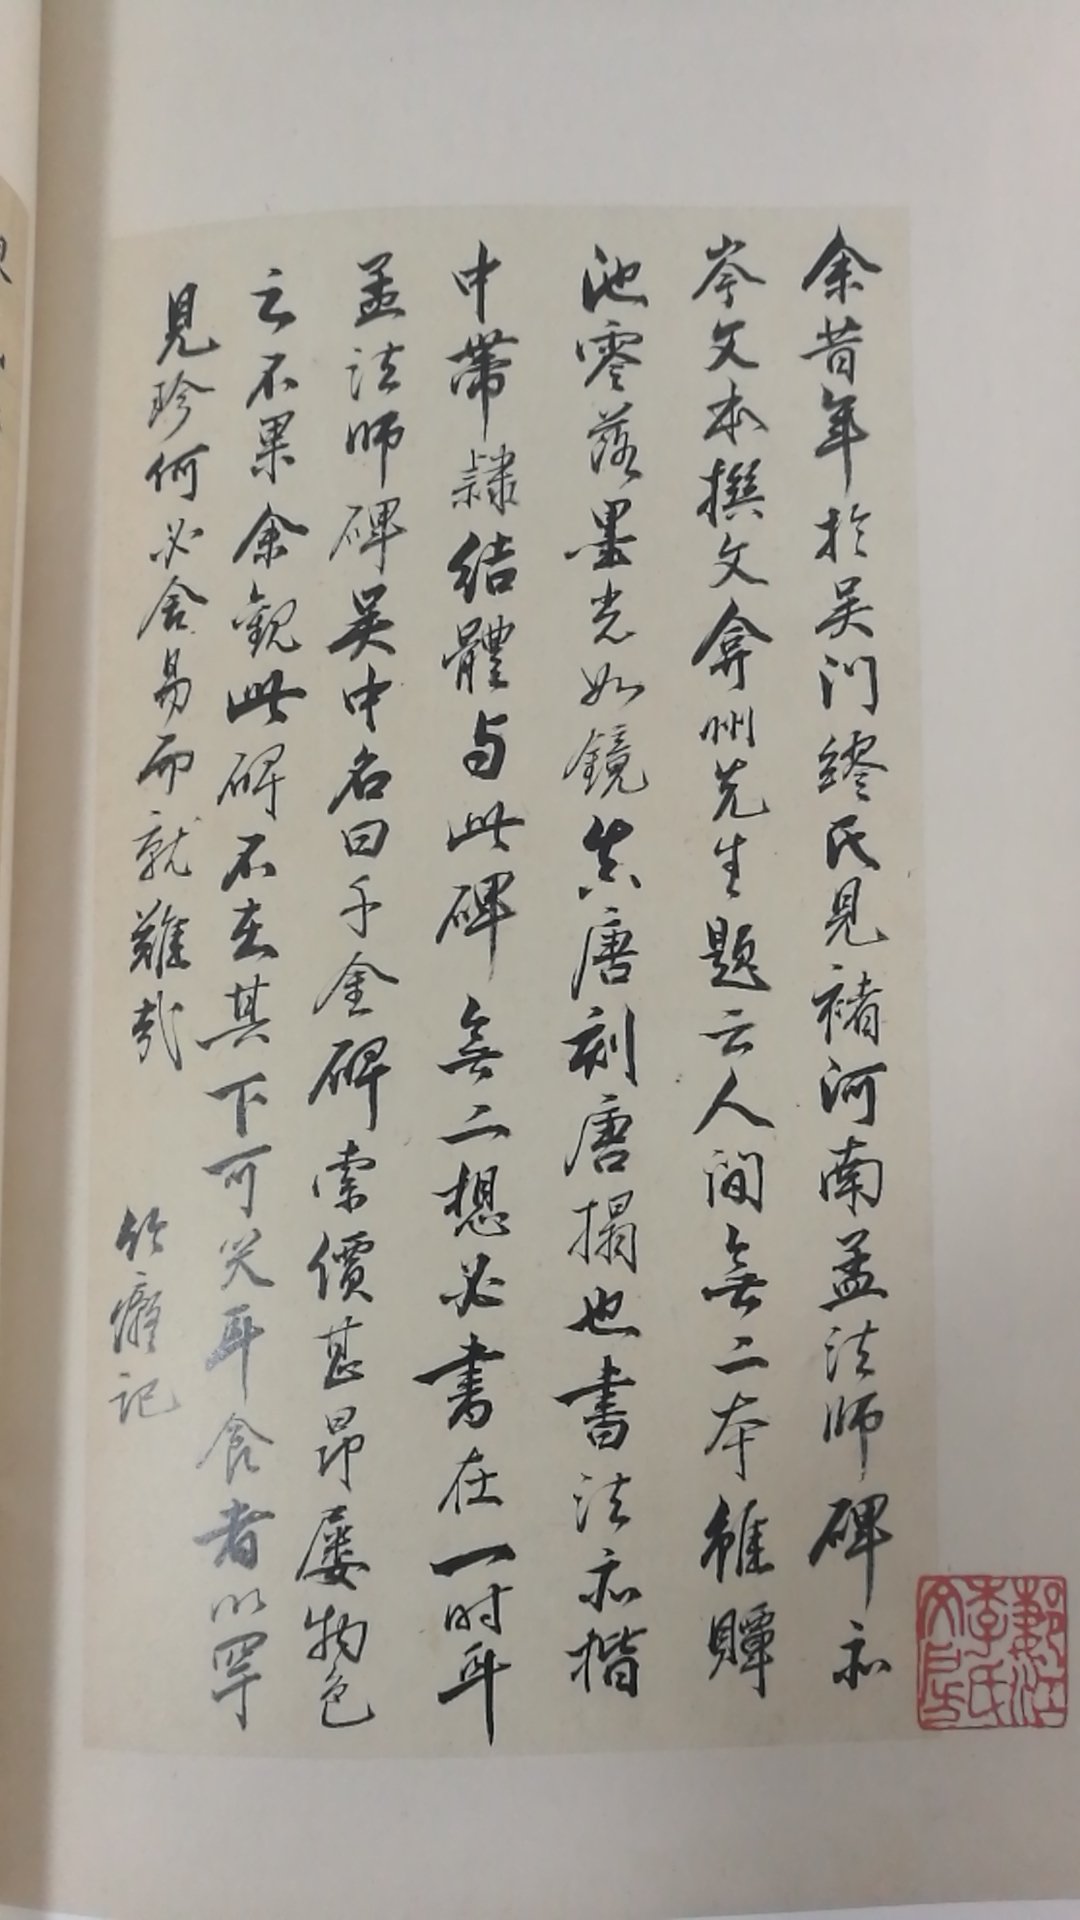 余昔年於吴门繆氏見褚河南孟法师碑亦
岑文本撰文弇州先生題云人间無二本雖賸
池零落墨光如鏡真唐刻唐搨也書法亦楷
中帶隸结體与此碑無二想必書在一时耳
孟法师碑吴中名曰千金碑索價甚昂屡物色
之不果余觀此碑不在其下可笑耳食者以罕
見珍何必舍易而就難哉
竹癡记
李氏